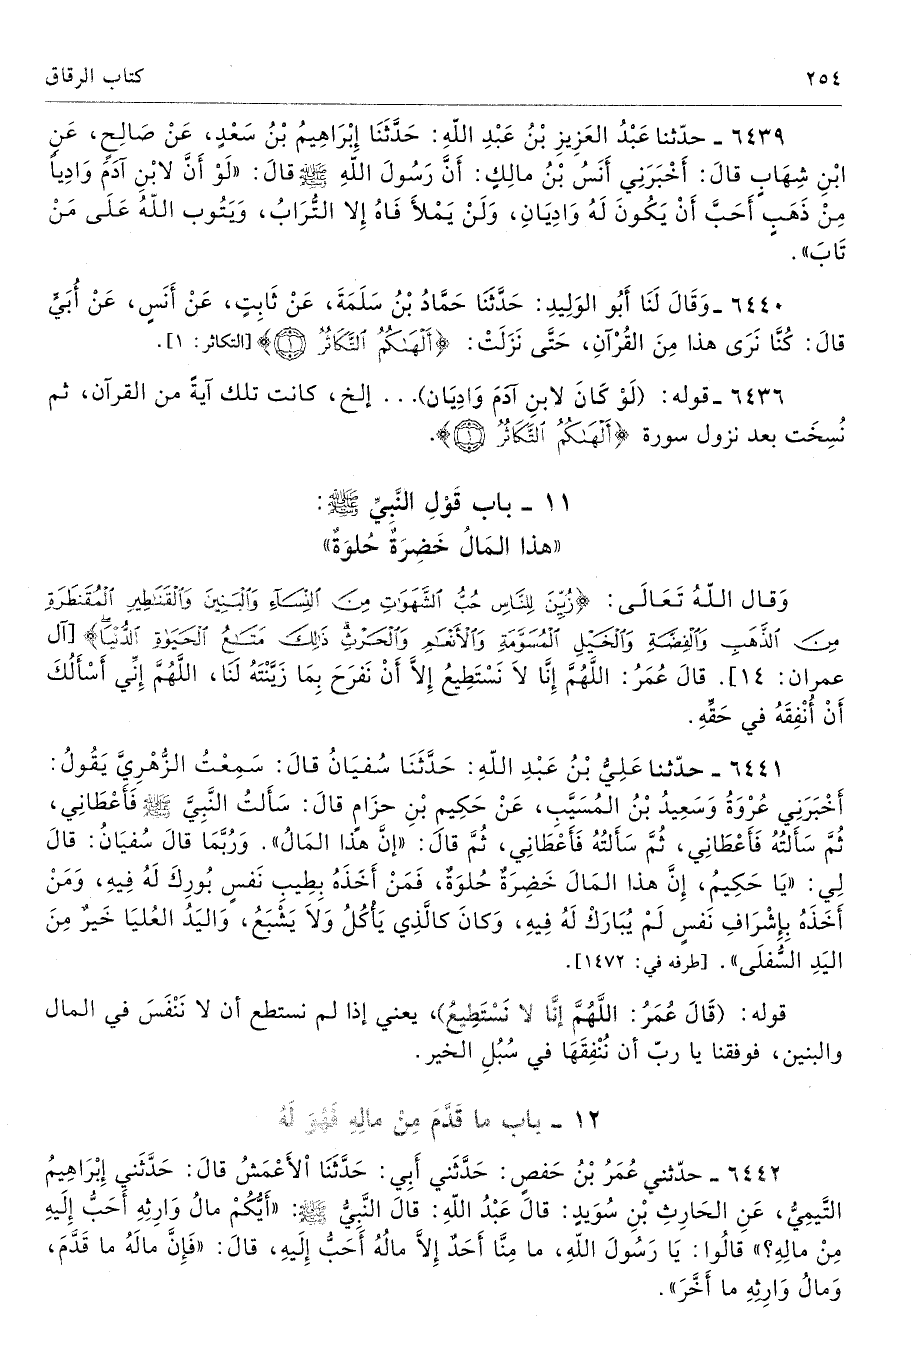 ٢٥٤ كتاب الرقاق
٦٤٣٩ ـ حدّثنا عَبْدُ العَزِيزِ بْنُ عَبْدِ اللّهِ: حَدَّثَنَا إِبْرَاهِيمُ بْنُ سَعْدٍ، عَنْ صَالِحٍ، عَنِ
ابْنِ شِهَابٍ قالَ: أَخْبَرَنِي أَنَسُ بْنُ مالِكٍ: أَنَّ رَسُولَ اللّهِ ﷺ قالَ: «لَوْ أَنَّ لابْنِ آدَمَ وَادِياً
مِنْ ذَهَبٍ أَحَبَّ أَنْ يَكُونَ لَهُ وَادِيَانِ، وَلَنْ يَمْلأَ فَاهُ إِلا التُّرَابُ، وَيَتُوب اللّهُ عَلَى مَنْ
تَابَ».
٦٤٤٠ ـ وَقَالَ لَنَا أَبُو الوَلِيدِ: حَدَّثَنَا حَمَّادُ بْنُ سَلَمَةَ، عَنْ ثَابِتٍ، عَنْ أَنَسٍ، عَنْ أُبَيٍّ
قالَ: كُنَّا نَرَى هذا مِنَ القُرْآنِ، حَتَّى نَزَلَتْ: ﴿أَلْهَىٰكُمُ ٱلتَّكَاثُرُ ۝١﴾ [التكاثر: ١].
٦٤٣٦ ـ قوله: (لَوْ كَانَ لابنِ آدَمَ وَادِيَان)... إلخ، كانت تلك آيةً من القرآن، ثم
نُسِخَت بعد نزول سورة ﴿أَلْهَىٰكُمُ ٱلتَّكَاثُرُ ۝١﴾.
١١ ـ باب قَوْلِ النَّبِيِّ ﷺ:
«هذا المَالُ خَضِرَةٌ حُلوَةٌ»
وَقَال اللّهُ تَعَالَى: ﴿زُيِّنَ لِلنَّاسِ حُبُّ ٱلشَّهَوَٰتِ مِنَ ٱلنِّسَآءِ وَٱلْبَنِينَ وَٱلْقَنَٰطِيرِ ٱلْمُقَنطَرَةِ
مِنَ ٱلذَّهَبِ وَٱلْفِضَّةِ وَٱلْخَيْلِ ٱلْمُسَوَّمَةِ وَٱلْأَنْعَٰمِ وَٱلْحَرْثِ ذَٰلِكَ مَتَٰعُ ٱلْحَيَوٰةِ ٱلدُّنْيَا﴾ [آل
عمران: ١٤]. قالَ عُمَرُ: اللَّهُمَّ إِنَّا لاَ نَسْتَطِيعُ إِلاَّ أَنْ نَفرَحَ بِمَا زَيَّنْتَهُ لَنَا، اللَّهُمَّ إِنِّي أَسْأَلُكَ
أَنْ أُنْفِقَهُ في حَقِّهِ.
٦٤٤١ ـ حدّثنا عَلِيُّ بْنُ عَبْدِ اللّهِ: حَدَّثَنَا سُفيَانُ قالَ: سَمِعْتُ الزُّهْرِيَّ يَقُولُ:
أَخْبَرَنِي عُرْوَةُ وَسَعِيدُ بْنُ المُسَيَّبِ، عَنْ حَكِيمِ بْنِ حزَامٍ قالَ: سَأَلتُ النَّبِيَّ ﷺ فَأَعْطَانِي،
ثُمَّ سَأَلتُهُ فَأَعْطَانِي، ثُمَّ سَأَلتُهُ فَأَعْطَانِي، ثُمَّ قالَ: «إِنَّ هذا المَالُ». وَرُبَّمَا قالَ سُفيَانُ: قالَ
لِي: «يَا حَكِيمُ، إِنَّ هذا المَالَ خَضِرَةٌ حُلوَةٌ، فَمَنْ أَخَذَهُ بِطِيبِ نَفسٍ بُورِكَ لَهُ فِيهِ، وَمَنْ
أَخَذَهُ بِإِشْرَافِ نَفسٍ لَمْ يُبَارَكْ لَهُ فِيهِ، وَكانَ كالَّذِي يَأْكُلُ وَلاَ يَشْبَعُ، وَاليَدُ العُليَا خَيرٌ مِنَ
اليَدِ السُّفلَى». [طرفه في: ١٤٧٢].
قوله: (قَالَ عُمَرُ: اللَّهُمَّ إِنَّا لا نَسْتَطِيعُ)، يعني إذا لم نستطع أن لا نَنْفَسَ في المال
والبنين، فوفقنا يا ربّ أن نُنْفِقَهَا في سُبُلِ الخير.
١٢ ـ باب ما قَدَّمَ مِنْ مالِهِ فَهُوَ لَهُ
٦٤٤٢ ـ حدّثني عُمَرُ بْنُ حَفصٍ: حَدَّثَني أَبِي: حَدَّثَنَا الأَعْمَشُ قالَ: حَدَّثَني إِبْرَاهِيمُ
التَّيمِيُّ، عَنِ الحَارِثِ بْنِ سُوَيدٍ: قالَ عَبْدُ اللّهِ: قالَ النَّبِيُّ ﷺ: «أَيُّكُمْ مالُ وَارِثِهِ أَحَبُّ إِلَيهِ
مِنْ مالِهِ؟» قالُوا: يَا رَسُولَ اللّهِ، ما مِنَّا أَحَدٌ إِلاَّ مالُهُ أَحَبُّ إِلَيهِ، قالَ: «فَإِنَّ مالَهُ ما قَدَّمَ،
وَمالُ وَارِثِهِ ما أَخَّرَ».